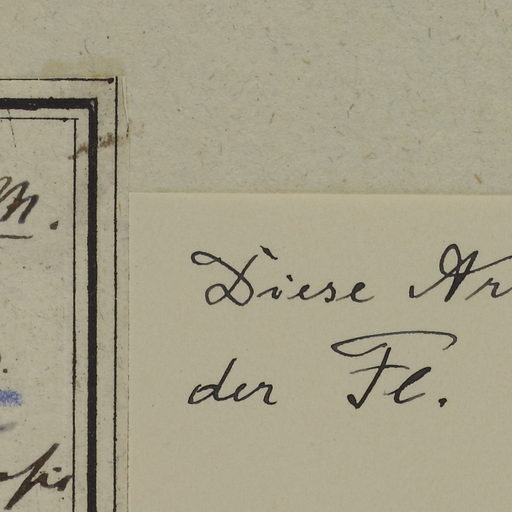 Diese Ar
der Fl.